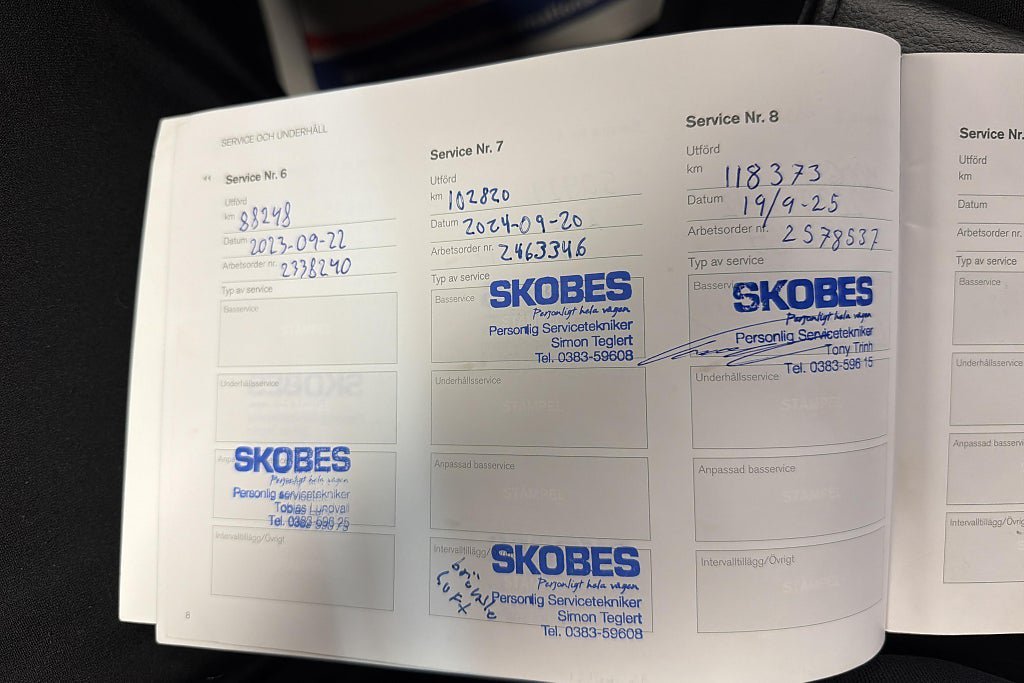 SERVICE OCH UNDERHÅLL
Service Nr. 6
Utförd
km 88248
Datum 2023-09-22
Arbetsorder nr. 2338240
Typ av service
Basservice
Underhållsservice
SKOBES
Personligt hela vägen
Personlig servicetekniker
Tobias Lundvall
Tel. 0383-596 25
Intervalltillägg/Övrigt
8
Service Nr. 7
Utförd
km 102820
Datum 2024-09-20
Arbetsorder nr. 2463346
Typ av service
Basservice
SKOBES
Personligt hela vägen
Personlig Servicetekniker
Simon Teglert
Tel. 0383-59608
Underhållsservice
STÄMPEL
Anpassad basservice
STÄMPEL
Intervalltillägg/Övrigt
SKOBES
Personligt hela vägen
Personlig Servicetekniker
Simon Teglert
Tel. 0383-59608
Service Nr. 8
Utförd
km 118373
Datum 19/9-25
Arbetsorder nr. 2578537
Typ av service
Basservice
SKOBES
Personligt hela vägen
Personlig Servicetekniker
Tony Trinh
Tel. 0383-596 15
Underhållsservice
STÄMPEL
Anpassad basservice
STÄMPEL
Intervalltillägg/Övrigt
STÄMPEL
Service Nr.
Utförd
km
Datum
Arbetsorder nr.
Typ av service
Basservice
Underhållsservice
Anpassad basservice
Intervalltillägg/Övrigt